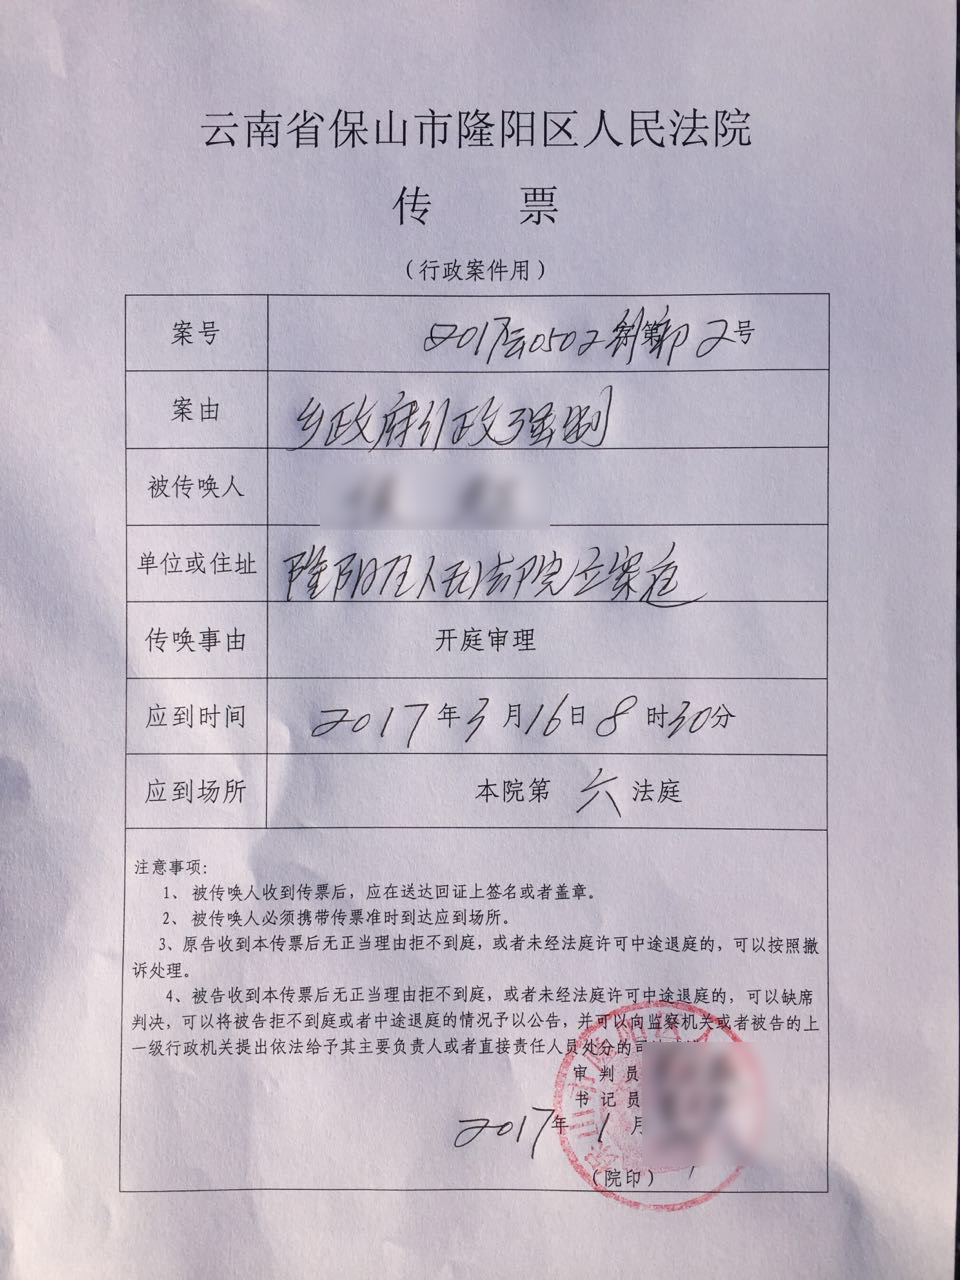 云南省保山市隆阳区人民法院
传 票
（行政案件用）
案号 2017云0502行第初2号
案由 乡政府行政强制
被传唤人
单位或住址 隆阳区人民法院立案庭
传唤事由 开庭审理
应到时间 2017年3月16日8时30分
应到场所 本院第六法庭
注意事项：
1、被传唤人收到传票后，应在送达回证上签名或者盖章。
2、被传唤人必须携带传票准时到达应到场所。
3、原告收到本传票后无正当理由拒不到庭，或者未经法庭许可中途退庭的，可以按照撤
诉处理。
4、被告收到本传票后无正当理由拒不到庭，或者未经法庭许可中途退庭的，可以缺席
判决，可以将被告拒不到庭或者中途退庭的情况予以公告，并可以向监察机关或者被告的上
一级行政机关提出依法给予其主要负责人或者直接责任人员处分的司
审判员
书记员
2017年1月
（院印）